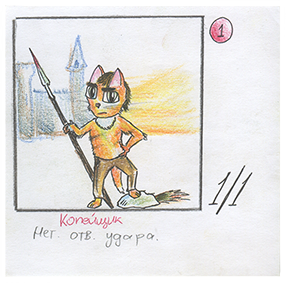 1
1/1
Копейщик
Нет. отв. удара.